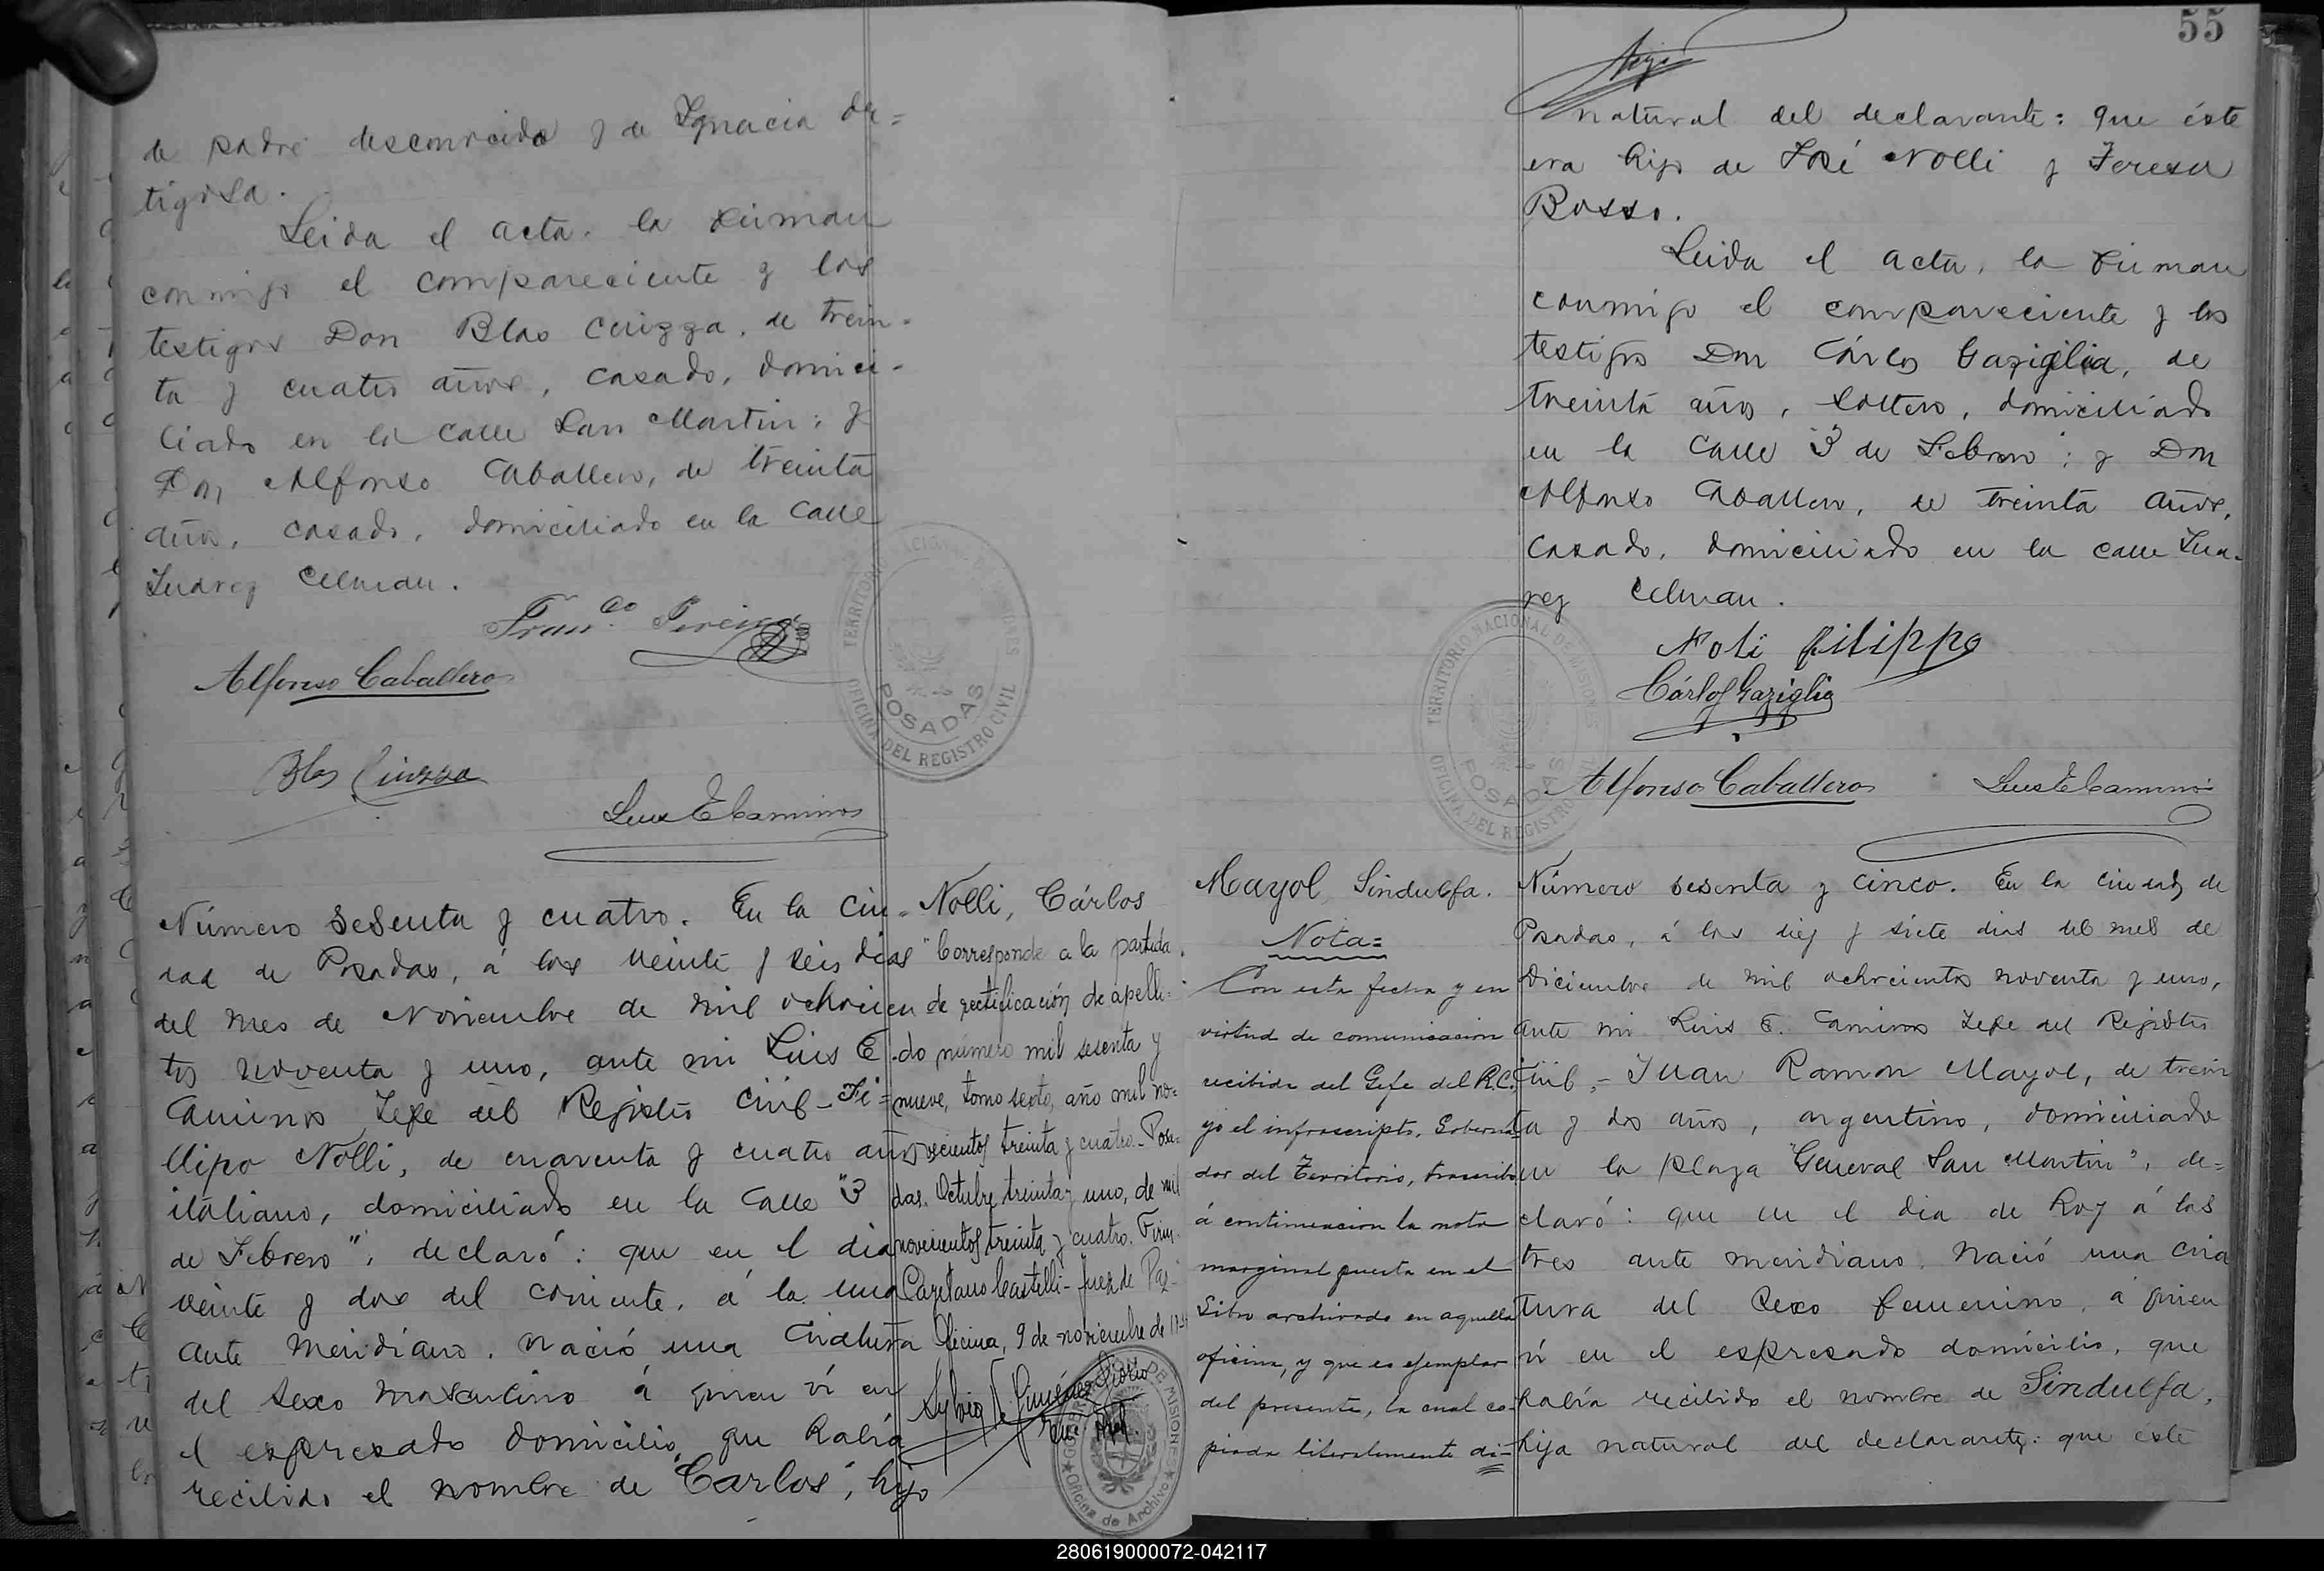 de padre desconocido y de Ignacia Or=
tigosa.
Leida el acta, la firman
conmigo el compareciente y los
testigos Don Blas Ciuzza, de trein-
ta y cuatro años, casado, domici-
liado en la calle San Martin; y
Don Alfonso Caballero, de treinta
años, casado, domiciliado en la calle
Juarez Celman.
Franco Pereira
Alfonso Caballero
Blas Ciuzza
Luis E Caminos
TERRITORIO NACIONAL DE MISIONES
POSADAS
OFICINA DEL REGISTRO CIVIL
Número sesenta y cuatro. En la ciu-
dad de Posadas, á los veinte y seis dias
del mes de Noviembre de mil ochocien
tos noventa y uno, ante mi Luis E.
Caminos Jefe del Registro Civil - Fi=
llipo Nolli, de cuarenta y cuatro años
italiano, domiciliado en la calle "3
de Febrero", declaró: que en el dia
veinte y dos del corriente, á la una
ante meridiano, nació una criatura
del sexo masculino á quien ví en
el espresado domicilio, que había
recibido el nombre de "Carlos", hijo
Nolli, Cárlos
"Corresponde a la partida
de rectificación de apelli-
do número mil sesenta y
nueve, tomo sexto, año mil no=
vecientos treinta y cuatro.- Posa-
das. Octubre, treinta y uno, de mil
novecientos treinta y cuatro. Firm.
Cayetano Castelli - Juez de Paz -
Oficina, 9 de noviembre de 1934
Sylvia Giménez
MISIONES
Oficina de Archivo
55
hijo
natural del declarante: que éste
era hijo de José Nolli y Teresa
Bosso.
Leida el acta, la firman
conmigo el compareciente y los
testigos Don Cárlos Gaziglia, de
treinta años, soltero, domiciliado
en la calle "3 de Febrero"; y Don
Alfonso Caballero, de treinta años,
casado, domiciliado en la calle Jua-
rez Celman.
Noli filippo
Cárlos Gaziglia
Alfonso Caballero
Luis E Caminos
TERRITORIO NACIONAL DE MISIONES
POSADAS
OFICINA DEL REGISTRO CIVIL
Mayol, Sindulfa.
Nota=
Con esta fecha y en
virtud de comunicacion
recibida del Gefe del R.C.
yo el infrascripto, Goberna-
dor del Territorio, transcribo
á continuacion la nota
marginal puesta en el
Libro archivado en aquella
oficina, y que es ejemplar
del presente, la cual co-
piada literalmente di-
Número sesenta y cinco. En la ciudad de
Posadas, á los diez y siete dias del mes de
Diciembre de mil ochocientos noventa y uno,
ante mi Luis E. Caminos Jefe del Registro
Civil,- Juan Ramon Mayol, de trein
ta y dos años, argentino, domiciliado
en la plaza "General San Martin", de=
claró: que en el dia de hoy á las
tres ante meridiano, nació una cria
tura del sexo femenino, á quien
ví en el espresado domicilio, que
había recibido el nombre de Sindulfa,
hija natural del declarante: que éste
280619000072-042117